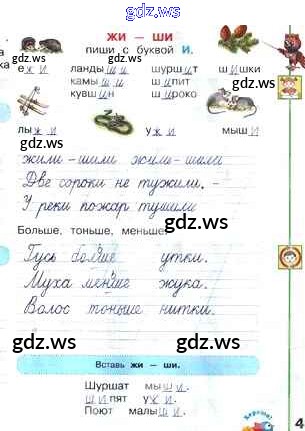 gdz.ws
ЖИ – ШИ
пиши с буквой И.
gdz.ws
gdz.ws
а
ка
ежи
ландыши
шуршит
шишки
камыши
шипит
кувшин
широко
лыжи
ужи
мыши
gdz.ws
жили – шили жили – шили
Две сороки не тужили. –
У реки пожар тушили
gdz.ws
Больше, тоньше, меньше.
gdz.ws
Гусь больше утки.
Муха меньше жука.
Волос тоньше нитки.
gdz.ws
gdz.ws
Вставь жи – ши.
Шуршат мыши.
Шипят ужи.
Поют малыши.
gdz.ws
gdz.ws
Хорошо!
4